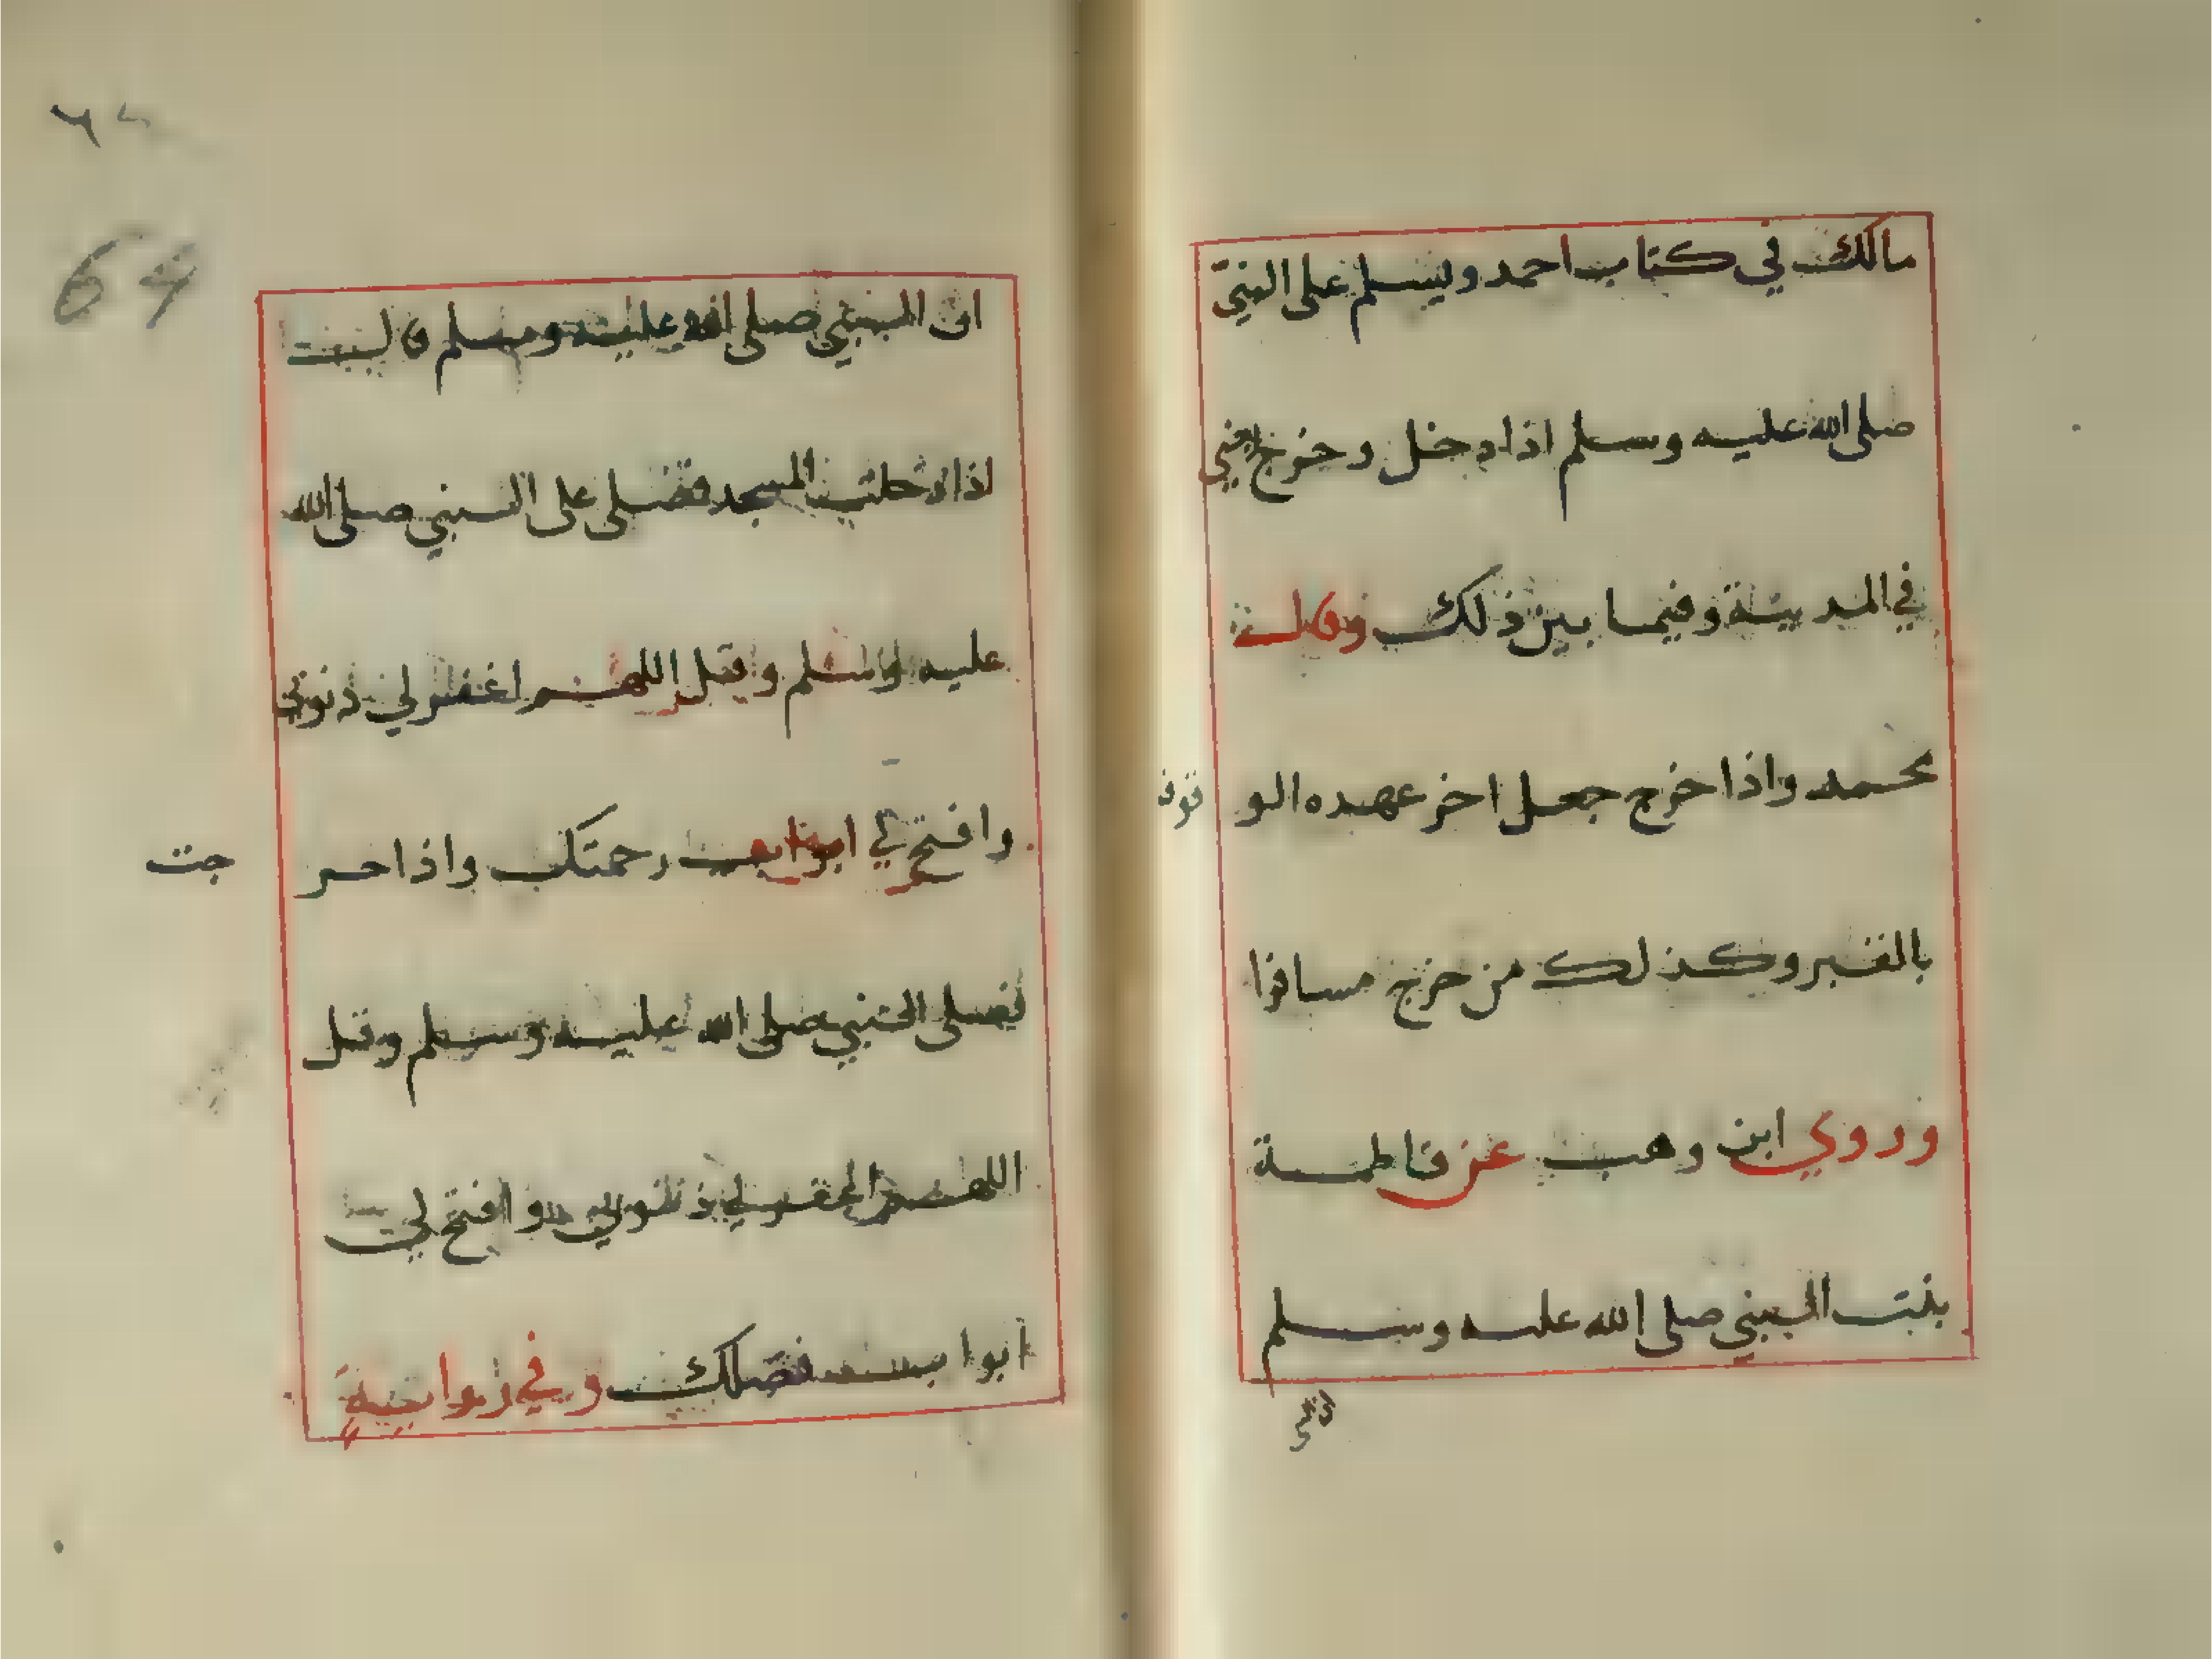 مالك في كتاب احمد ويسلم على النبي
صلى الله عليه وسلم اذا دخل وخرج يعني
في المدينة وفيما بين ذلك وقال
محمد واذا خرج جعل اخر عهده الوقوف
بالقبر وكذلك من خرج مسافرا
وروي ابن وهب عن فاطمة
بنت النبي صلى الله عليه وسلم
ان
ان النبي صلى الله عليه وسلم قال
اذا دخلت المسجد فصلى على النبي صلى الله
عليه وسلم وقل اللهم اغفر لي ذنوبي
وافتح لي ابواب رحمتك واذا خرجت
فصلى النبي صلى الله عليه وسلم وقل
اللهم اغفر لي ذنوبي وافتح لي
ابواب فضلك وفي رواية
64